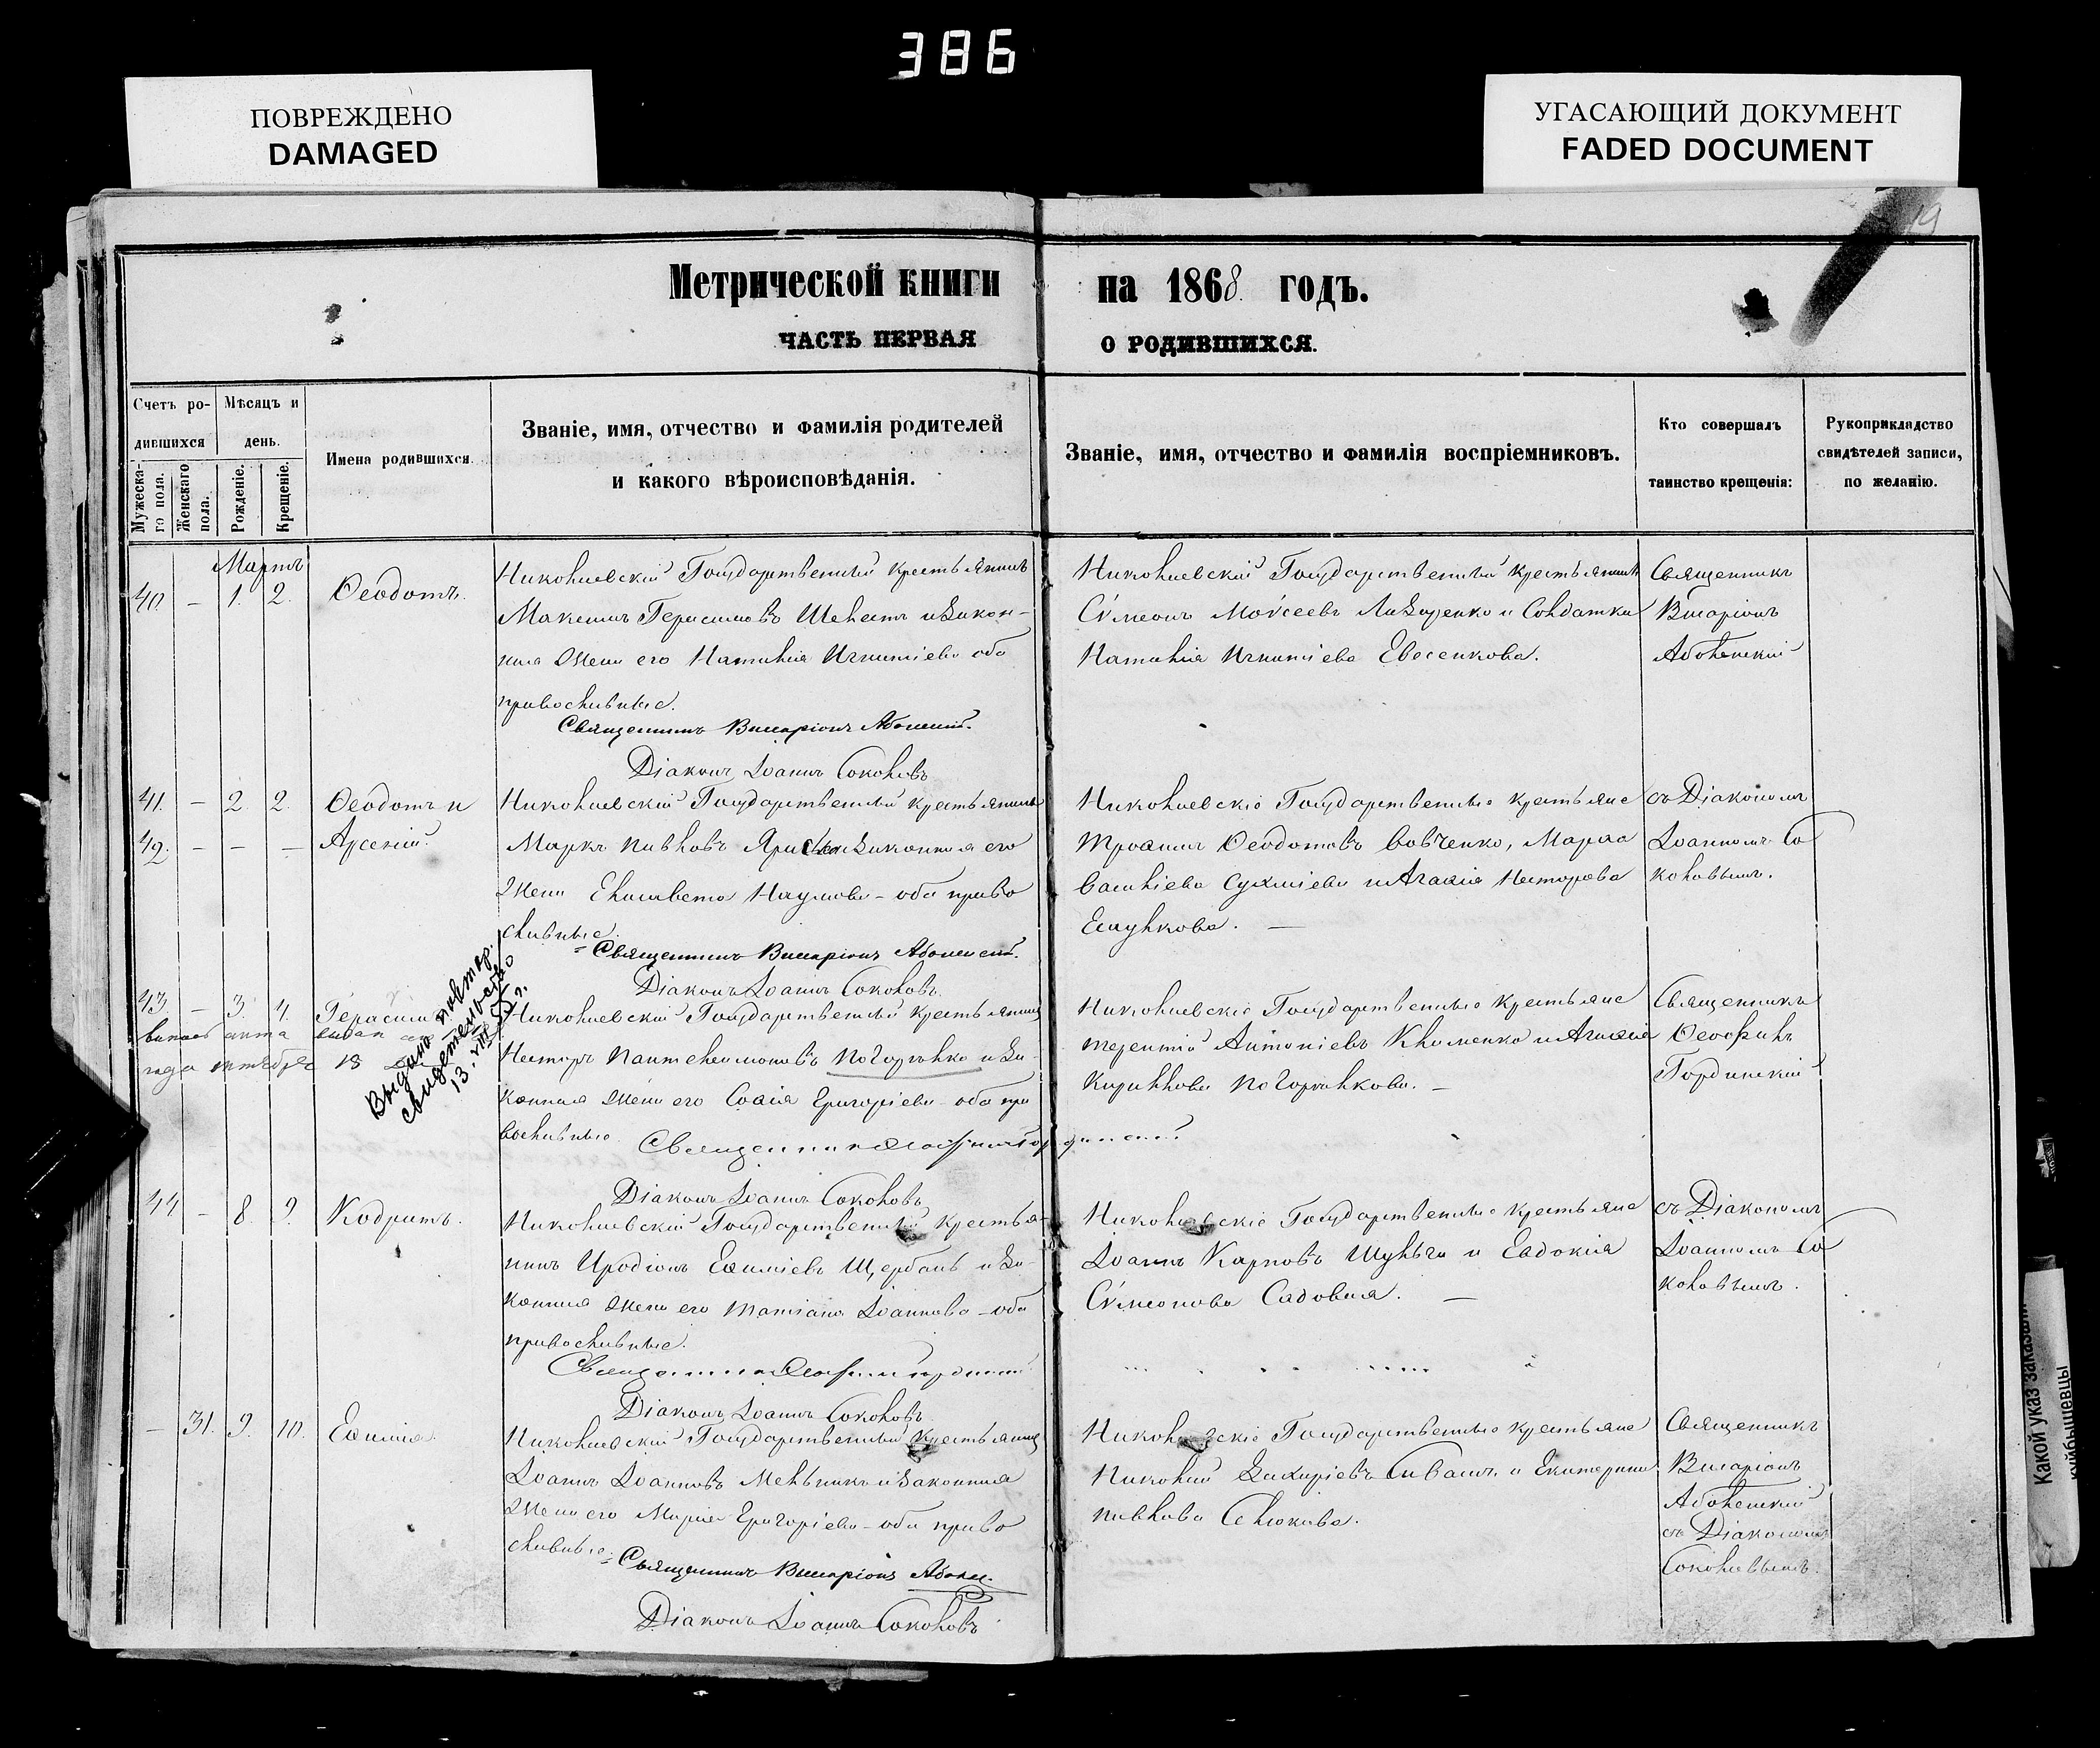 386
ПОВРЕЖДЕНО
DAMAGED
УГАСАЮЩИЙ ДОКУМЕНТ
FADED DOCUMENT
19
Метрической книги на 1868 годъ.
ЧАСТЬ ПЕРВАЯ О РОДИВШИХСЯ.
Счетъ ро-
дившихся
Мужеска-
го пола.
Женскаго
пола.
Мѣсяцъ и
день.
Рожденіе.
Крещеніе.
Имена родившихся.
Званіе, имя, отчество и фамилія родителей
и какого вѣроисповѣданія.
Званіе, имя, отчество и фамилія воспріемниковъ.
Кто совершалъ
таинство крещенія:
Рукоприкладство
свидѣтелей записи,
по желанію.
Мартъ
40. – 1. 2. Ѳеодотъ.
Николаевскій Государственный крестьянинъ
Максимъ Герасимовъ Шелестъ и закон-
ная жена его Наталія Игнатіева оба
православные.
Священникъ Виссаріонъ
Діаконъ Іоаннъ Соколовъ
Николаевскій Государственный крестьянинъ
Сѵмеонъ Моѵсеевъ Лазаренко и Солдатка
Наталія Игнатіева Евсенкова.
Священникъ
Висаріонъ
41. – 2. 2. Ѳеодотъ и
42. – – – Арсеній.
Николаевскій Государственный крестьянинъ
Маркъ Павловъ законная его
жена Елисавета Наумова – оба право
славные.
Священникъ Виссаріонъ
Діаконъ Іоаннъ Соколовъ
Николаевскіе Государственные крестьяне
Трофимъ Ѳеодотовъ Вовченко, Марѳа
Васильева и Агафія Несторова
съ Діакономъ
Іоанномъ Со
коловымъ.
43. – 3. 4. Герасимъ
акта выдан
года октября 13
Выдано повтор.
свидетельство
13.VIII
Николаевскій Государственный крестьянинъ
Несторъ Пантелеимоновъ Погорѣлко и за-
конная жена его Софія Григоріева оба пра
вославные.
Священникъ Ѳеофилъ Гординскій
Діаконъ Іоаннъ Соколовъ
Николаевскіе Государственные крестьяне
Терентій Антоніевъ Клименко и Агафія
Кириллова Погорѣлкова. –
Священникъ
Ѳеофилъ
Гординскій
44 – 8. 9. Кодратъ.
Николаевскій Государственный крестья-
нинъ Иродіонъ Евфиміевъ Щербань и за-
конная жена его Татіана Іоаннова – оба
православные.
Діаконъ Іоаннъ Соколовъ
Николаевскіе Государственные крестьяне
Іоаннъ Карповъ Шульга и Евдокія
Сѵмеонова Садовая. –
съ Діакономъ
Іоанномъ Со
коловымъ.
– 31. 9. 10. Евфимія.
Николаевскій Государственный крестьянинъ
Іоаннъ Іоанновъ Мельникъ и законная
жена его Марія Григоріева – оба право
славные.
Священникъ Виссаріонъ
Діаконъ Іоаннъ Соколовъ
Николаевскіе Государственные крестьяне
Николай Захаріевъ Сиващъ и Екатерина
Павлова Селюкова.
Священникъ
Висаріонъ
съ Діакономъ
Соколовымъ.
Какой указ заказали
куйбышевцы